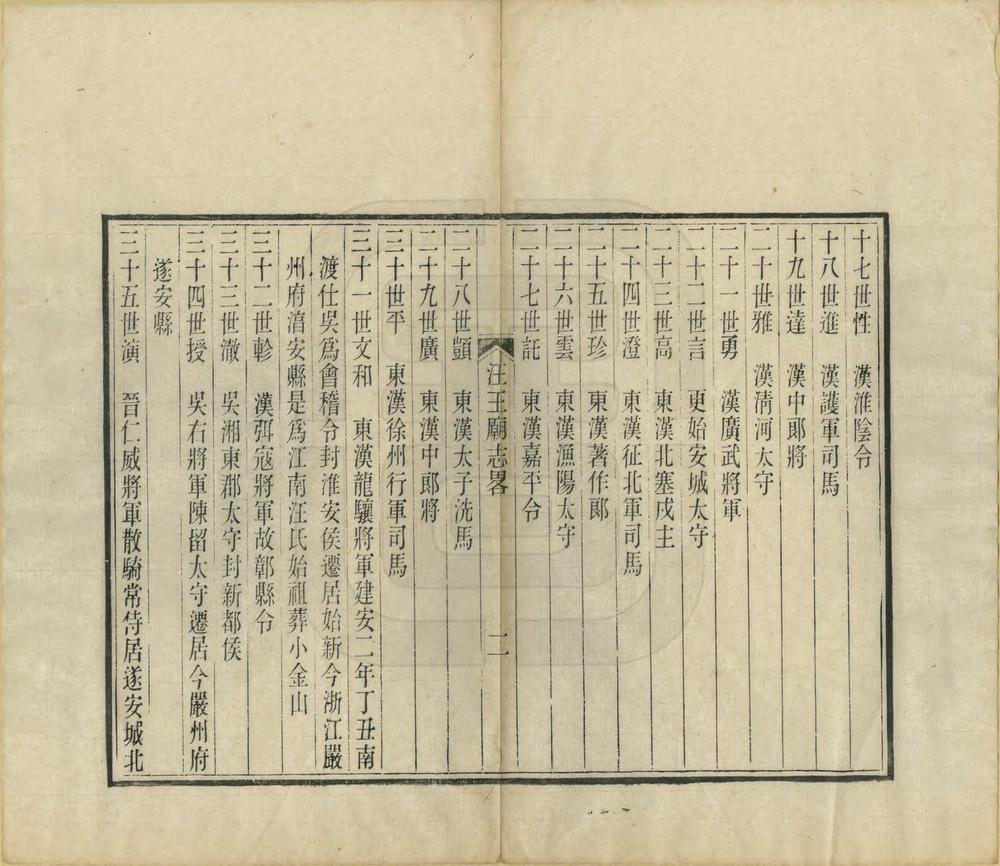 十七世性　漢淮陰令
十八世進　漢護軍司馬
十九世達　漢中郎將
二十世雅　漢淸河太守
二十一世勇　漢廣武將軍
二十二世言　更始安城太守
二十三世高　東漢北塞戍主
二十四世澄　東漢征北軍司馬
二十五世珍　東漢著作郎
二十六世雲　東漢漁陽太守
二十七世託　東漢嘉平令
汪王廟志畧　二
二十八世顗　東漢太子洗馬
二十九世廣　東漢中郎將
三十世平　東漢徐州行軍司馬
三十一世文和　東漢龍驤將軍建安二年丁丑南
渡仕吳爲會稽令封淮安侯遷居始新今浙江嚴
州府淯安縣是爲江南汪氏始祖葬小金山
三十二世軫　漢弭寇將軍故鄣縣令
三十三世澈　吳湘東郡太守封新都侯
三十四世授　吳右將軍陳留太守遷居今嚴州府
遂安縣
三十五世演　晉仁威將軍散騎常侍居遂安城北